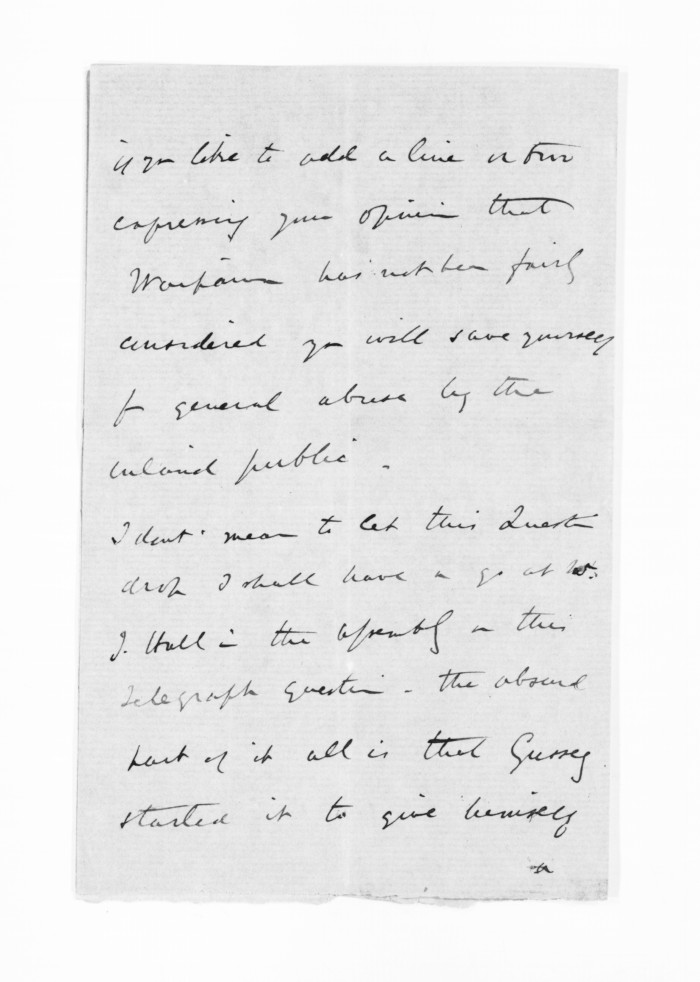 if you like to add a line or two
expressing your opinion that
Waipawa has not been fairly
considered you will save yourself
fr general abuse by the
inland public.
I dont mean to let this Questn
drop I shall have a go at
J. Hall in the Assembly on this
Telegraph question - the absurd
part of it all is that Gussey
started it to give himself
a